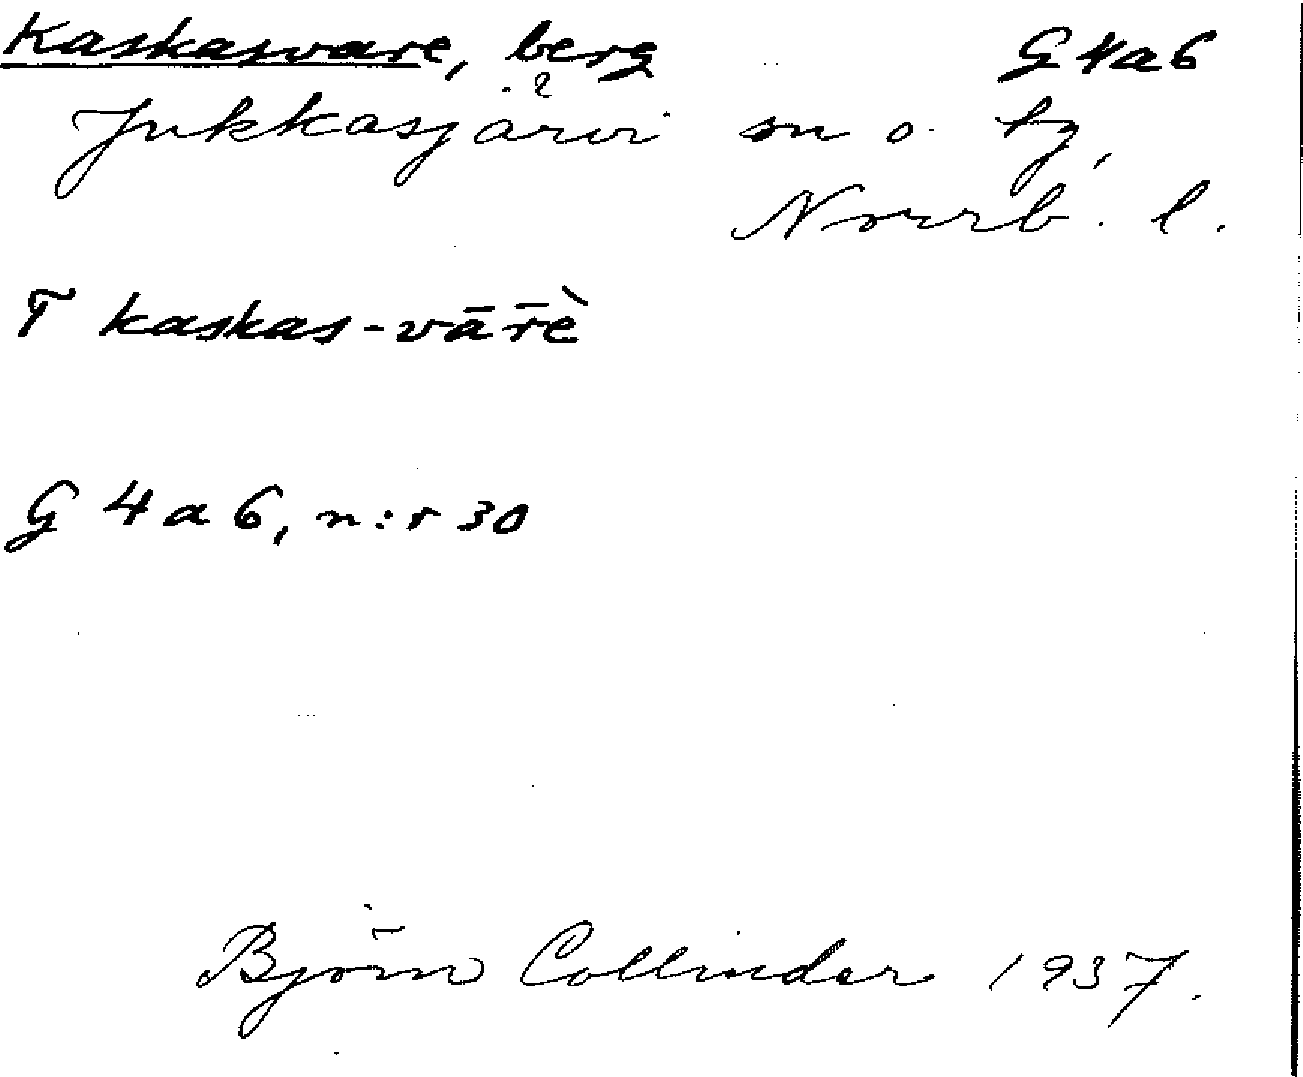 Kaskasvare, berg G4a6
Jukkasjärvi sn o. tg,
Norrb. l.
T kaskas-vār̄è
G 4 a 6, n:r 30
Björn Collinder 1937.